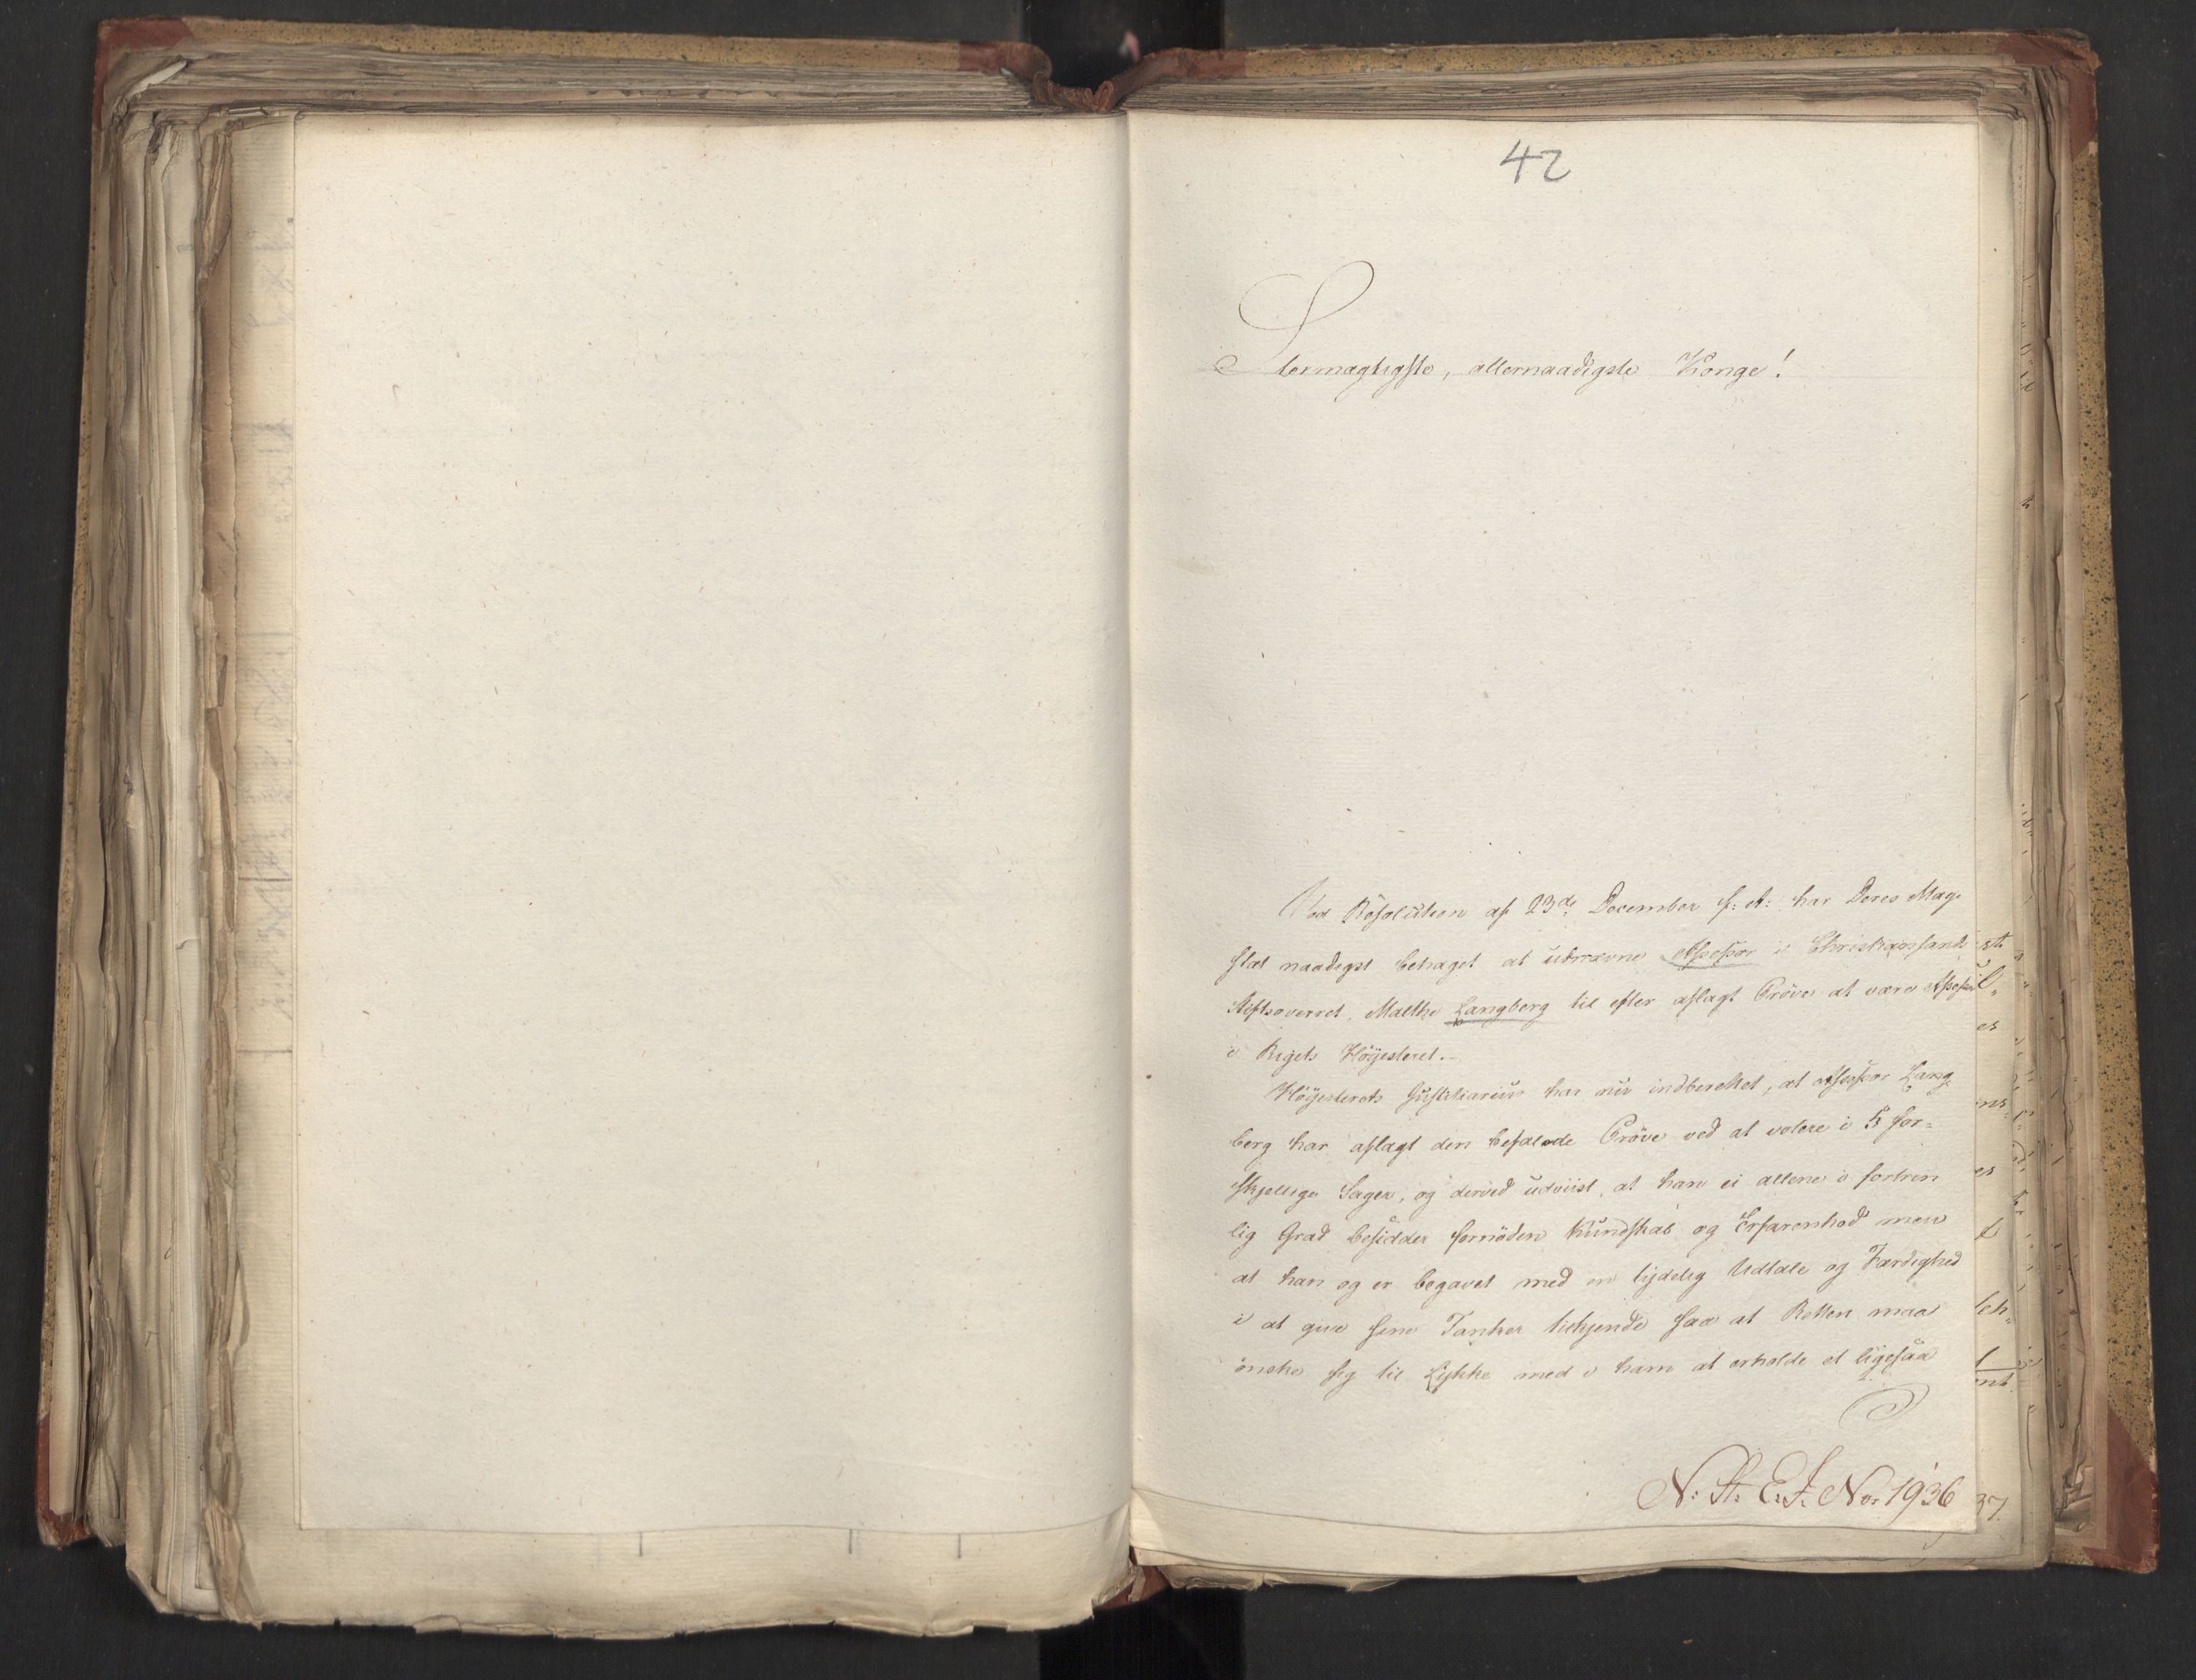 42
Stormægtigste, allernaadigste Konge!
Ved Resolution af 23de December f: A: har Deres Maje
stæt naadigst behaget at udnævne Assessor i Christiansands
Stiftsoverret, Malthe Langberg til efter aflagt Pröve at være Assessor
i Rigets Höÿesteret.
Höÿesterets Justitiarius har nu indberettet, at Assessor Lang
berg har aflagt den befalede Pröve ved at votere i 5 for=
skjellige Sager, og derved udviist, at han ei allene i fortrin
lig Grad besidder fornöden Kundskab og Erfarenhed men
at han og er begavet med en tydelig Udtale og Færdighed
i at give sine Tanker tilkjende saa at Retten maa
önske sig til Lykke med i ham at erholde et ligesaa
N: St. E. F. No. 1936
37.